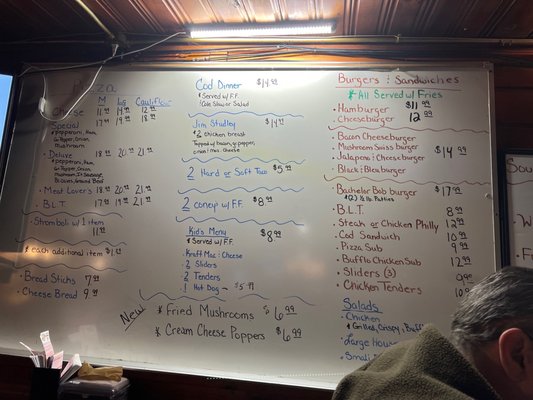 M Lg Cauliflower
Cheese 11.99 14.99 12.99
Special 17.99 19.99 18.99
* pepperoni, Ham
Gr. Pepper, Onion
Mushroom
• Deluxe 18.99 20.99 21.99
* pepperoni, Ham
Gr. Pepper, Onion,
Mushroom, Sausage
Bacon, Ground Beef
• Meat Lover's 18.99 20.99 21.99
• B.L.T. 17.99 19.99 21.99
• Stromboli w/ 1 item
11.99
* each additional item $1
• Bread Sticks 7.99
• Cheese Bread 9.99
Cod Dinner $14.99
* Served w/ F.F.
Cole Slaw or Salad
Jim Studley $14.99
* chicken breast
Topped w/ bacon, gr. pepper,
onion & moz. cheese
2 Hard or Soft Taco $5.99
2 coney w/ F.F. $8.99
Kid's Menu $8.99
* Served w/ F.F.
Kraft Mac & Cheese
2 Sliders
2 Tenders
1 Hot Dog - $5.49
New
* Fried Mushrooms $6.99
* Cream Cheese Poppers $6.99
Burgers & Sandwiches
* All Served w/ Fries
• Hamburger $11.99
• Cheeseburger 12.99
• Bacon Cheeseburger
• Mushroom Swiss burger $14.99
• Jalapeno & Cheese burger
• Black & Bleu burger
• Bachelor Bob burger $17.99
* (2) ½ lb. Patties
• B.L.T. 8.99
• Steak or Chicken Philly 12.99
• Cod Sandwich 10.99
• Pizza Sub 9.99
• Buffalo Chicken Sub 12.99
• Sliders (3) 9.99
• Chicken Tenders 10.
Salads
• Chicken
* Grilled, Crispy, Buff
• Large House
• Small
Sou